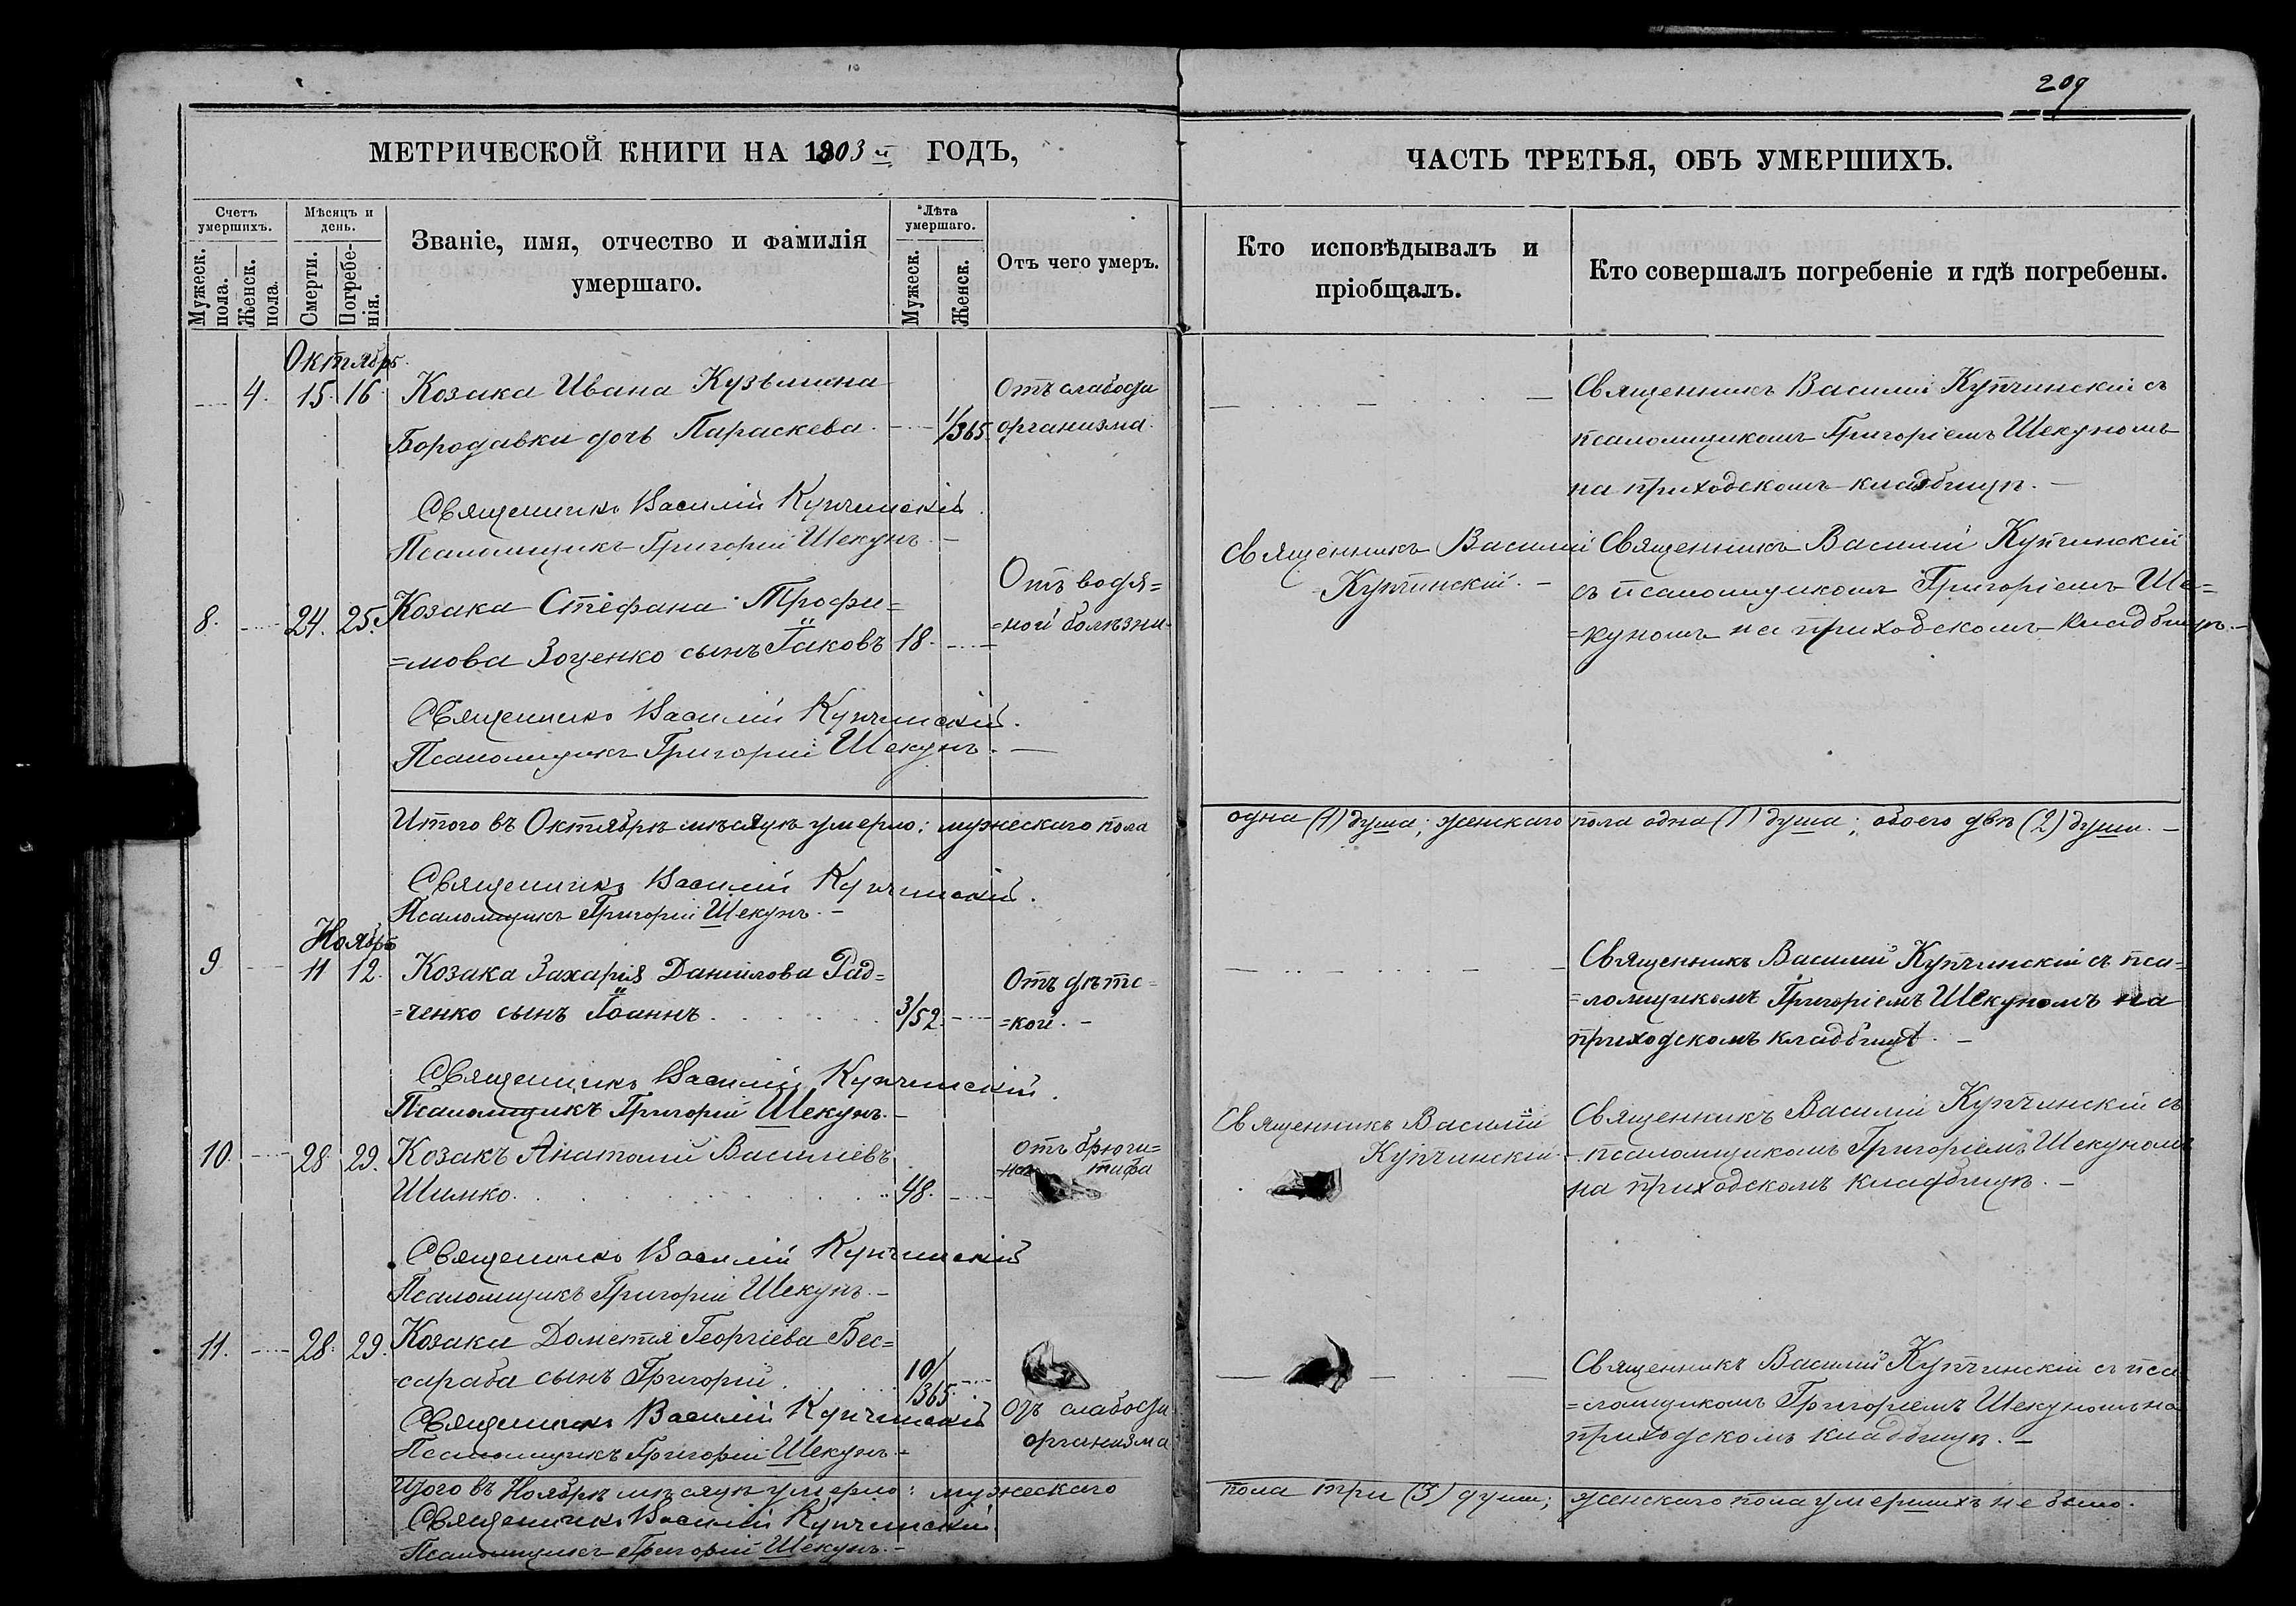 209
МЕТРИЧЕСКОЙ КНИГИ НА 1903й ГОДЪ,
Счетъ умершихъ.
Мужеск. пола.
Женск. пола.
Мѣсяцъ и день.
Смерти.
Погребе-нія.
Званіе, имя, отчество и фамилія
умершаго.
Лѣта умершаго.
Мужеск.
Женск.
Отъ чего умеръ.
Октябрь
4. 15. 16. Козака Ивана Кузьмина Отъ слабости
Бородавки дочь Параскева. 1/365. организма.
Священникъ Василій Купчинскій.
Псаломщикъ Григорій Шекунъ. –
8. 24. 25. Козака Стефана Трофи= Отъ водя=
=мова Зоценко сынъ Іаковъ 18. =ной болѣзни.
Священникъ Василій Купчинскій.
Псаломщикъ Григорій Шекунъ. –
Итого въ Октябрѣ мѣсяцѣ умерло: мужескаго пола
Священникъ Василій Купчинскій.
Псаломщикъ Григорій Шекунъ. –
Ноябрь
9 11 12. Козака Захарія Даніилова Рад= Отъ дѣтс=
=ченко сынъ Іоаннъ. 3/52. =кой. –
Священникъ Василій Купчинскій.
Псаломщикъ Григорій Шекунъ. –
10. 28 29. Козакъ Анатолій Василіевъ отъ брюш=
Шимко. 48. тифа
Священникъ Василій Купчинскій
Псаломщикъ Григорій Шекунъ. –
11. 28. 29. Козака Дометія Георгіева Бес=
=сараба сынъ Григорій. 10/365.
Священникъ Василій Купчинскій Отъ слабости
Псаломщикъ Григорій Шекунъ – организма
Итого въ Ноябрѣ мѣсяцѣ умерло: мужескаго
Священникъ Василій Купчинскій.
Псаломщикъ Григорій Шекунъ. –
ЧАСТЬ ТРЕТЬЯ, ОБЪ УМЕРШИХЪ.
Кто исповѣдывалъ и
пріобщалъ.
Кто совершалъ погребеніе и гдѣ погребены.
Священникъ Василій Купчинскій съ
псаломщикомъ Григоріемъ Шекуномъ
на приходскомъ кладбищѣ. –
Священникъ Василій
Купчинскій. –
Священникъ Василій Купчинскій
съ псаломщикомъ Григоріемъ Ше=
=куномъ на приходскомъ кладбищѣ. –
одна (1) душа; женскаго пола одна (1) душа; обоего двѣ (2) души. –
Священникъ Василій Купчинскій съ пса=
=ломщикомъ Григоріемъ Шекуномъ на
приходскомъ кладбищѣ. –
Священникъ Василій
Купчинскій
Священникъ Василій Купчинскій съ
псаломщикомъ Григоріемъ Шекуномъ
на приходскомъ кладбищѣ. –
Священникъ Василій Купчинскій съ пса
=ломщикомъ Григоріемъ Шекуномъ на
приходскомъ кладбищѣ. –
пола три (3) души; женскаго пола умершихъ не было.